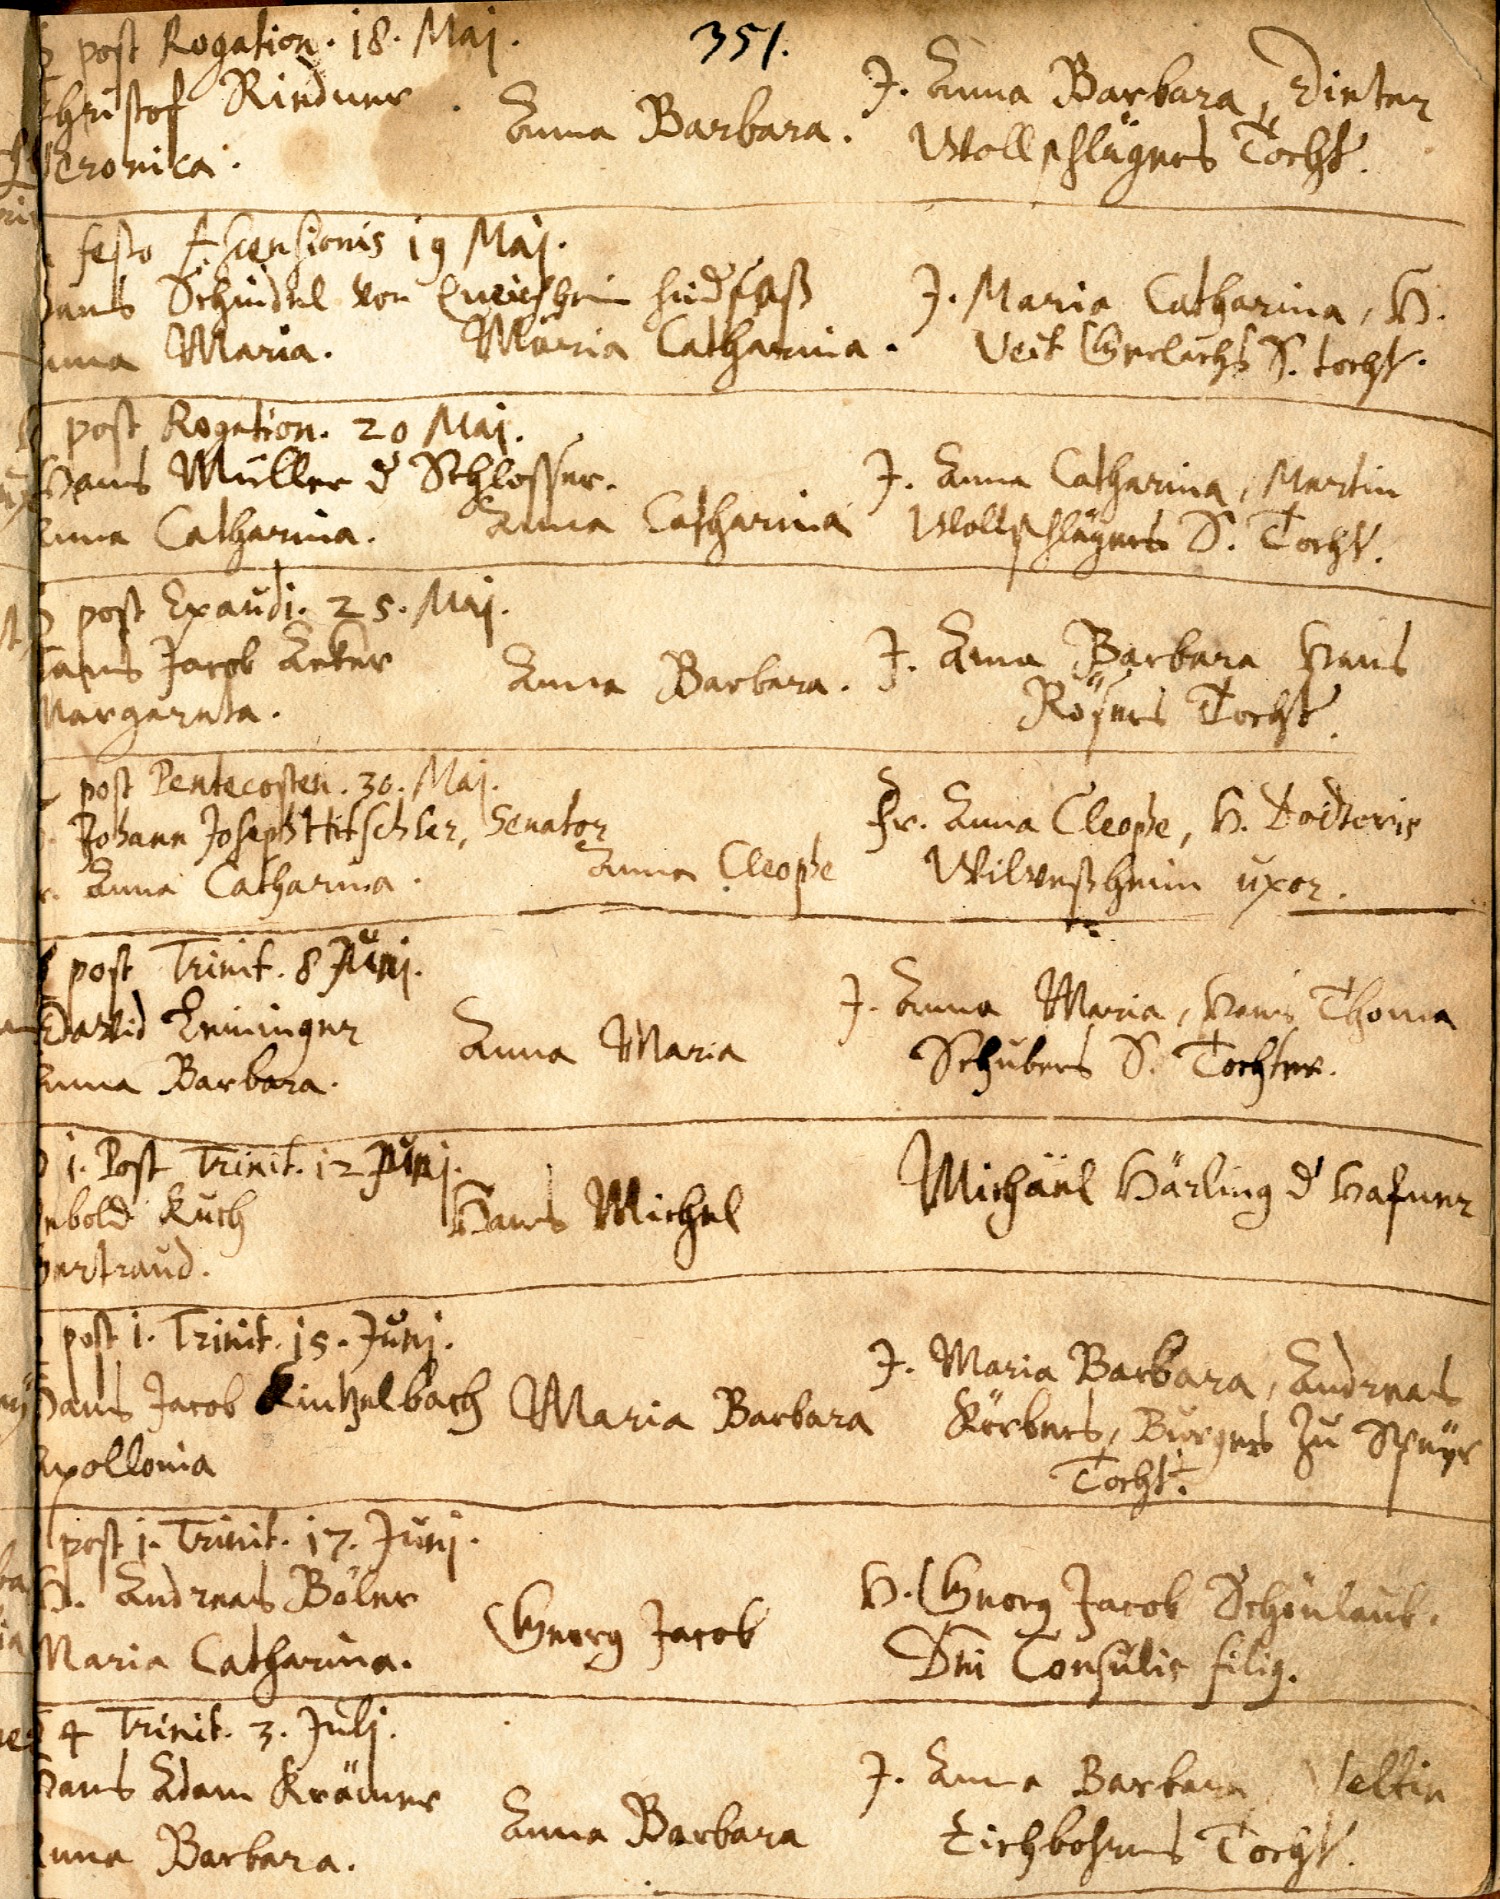 351.
post Rogation. 18. Maj.
Christof Rindner
Veronica.
Anna Barbara.
J. Anna Barbara, Dieter
Wollschlägers Tocht.
festo Ascensionis 19 Maj.
Hans Schindel von
Anna Maria.
Maria Catharina.
J. Maria Catharina, H.
Veit Gerlachs S. tocht.
post Rogation. 20 Maj.
Hans Müller d Schlosser.
Anna Catharina.
Anna Catharina
J. Anna Catharina, Martin
Wollschlägers S. Tocht.
post Exaudi. 25. Maj.
Hans Jacob Acker
Margareta.
Anna Barbara.
J. Anna Barbara Hans
Rösers Tocht.
post Pentecosten. 30. Maj.
Johann Joseph Hitschler, Senator
Anna Catharina.
Anna Cleophe
Fr. Anna Cleophe, H. Doctoris
Wilvesheim uxor.
post Trinit. 8 Junj.
David Leininger
Anna Barbara.
Anna Maria
J. Anna Maria, Hans Thoma
Schubers S. Tochter.
1. Post Trinit. 12 Junj.
Kuch
Gertraud.
Hans Michel
Michäel Härling d Hafner
post 1. Trinit. 15. Junj.
Hans Jacob Kintzelbach
Apollonia
Maria Barbara
J. Maria Barbara, Andreas
Körbers, Burgers zu Speyr
Tocht.
post 1. Trinit. 17. Junj.
H. Andreas Böler
Maria Catharina.
Georg Jacob
H. Georg Jacob Schönlaub.
Dni Consulis filiq.
4 Trinit. 3. Julj.
Hans Adam Krämer
Anna Barbara.
Anna Barbara
J. Anna Barbara, Veltin
Eichborns Tocht.